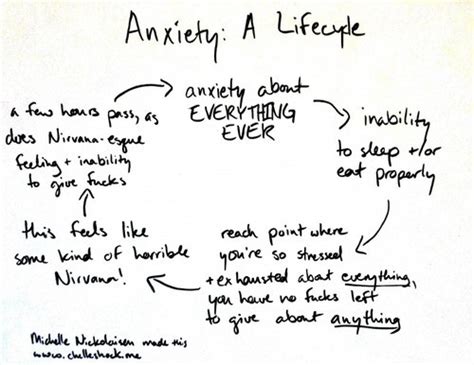 Anxiety: A Lifecycle
anxiety about
EVERYTHING
EVER
inability
to sleep +/or
eat properly
reach point where
you're so stressed
+ exhausted about everything,
you have no fucks left
to give about anything
this feels like
some kind of horrible
Nirvana!
a few hours pass, as
does Nirvana-esque
feeling + inability
to give fucks
Michelle Nickolaisen made this
www.chelleshock.me